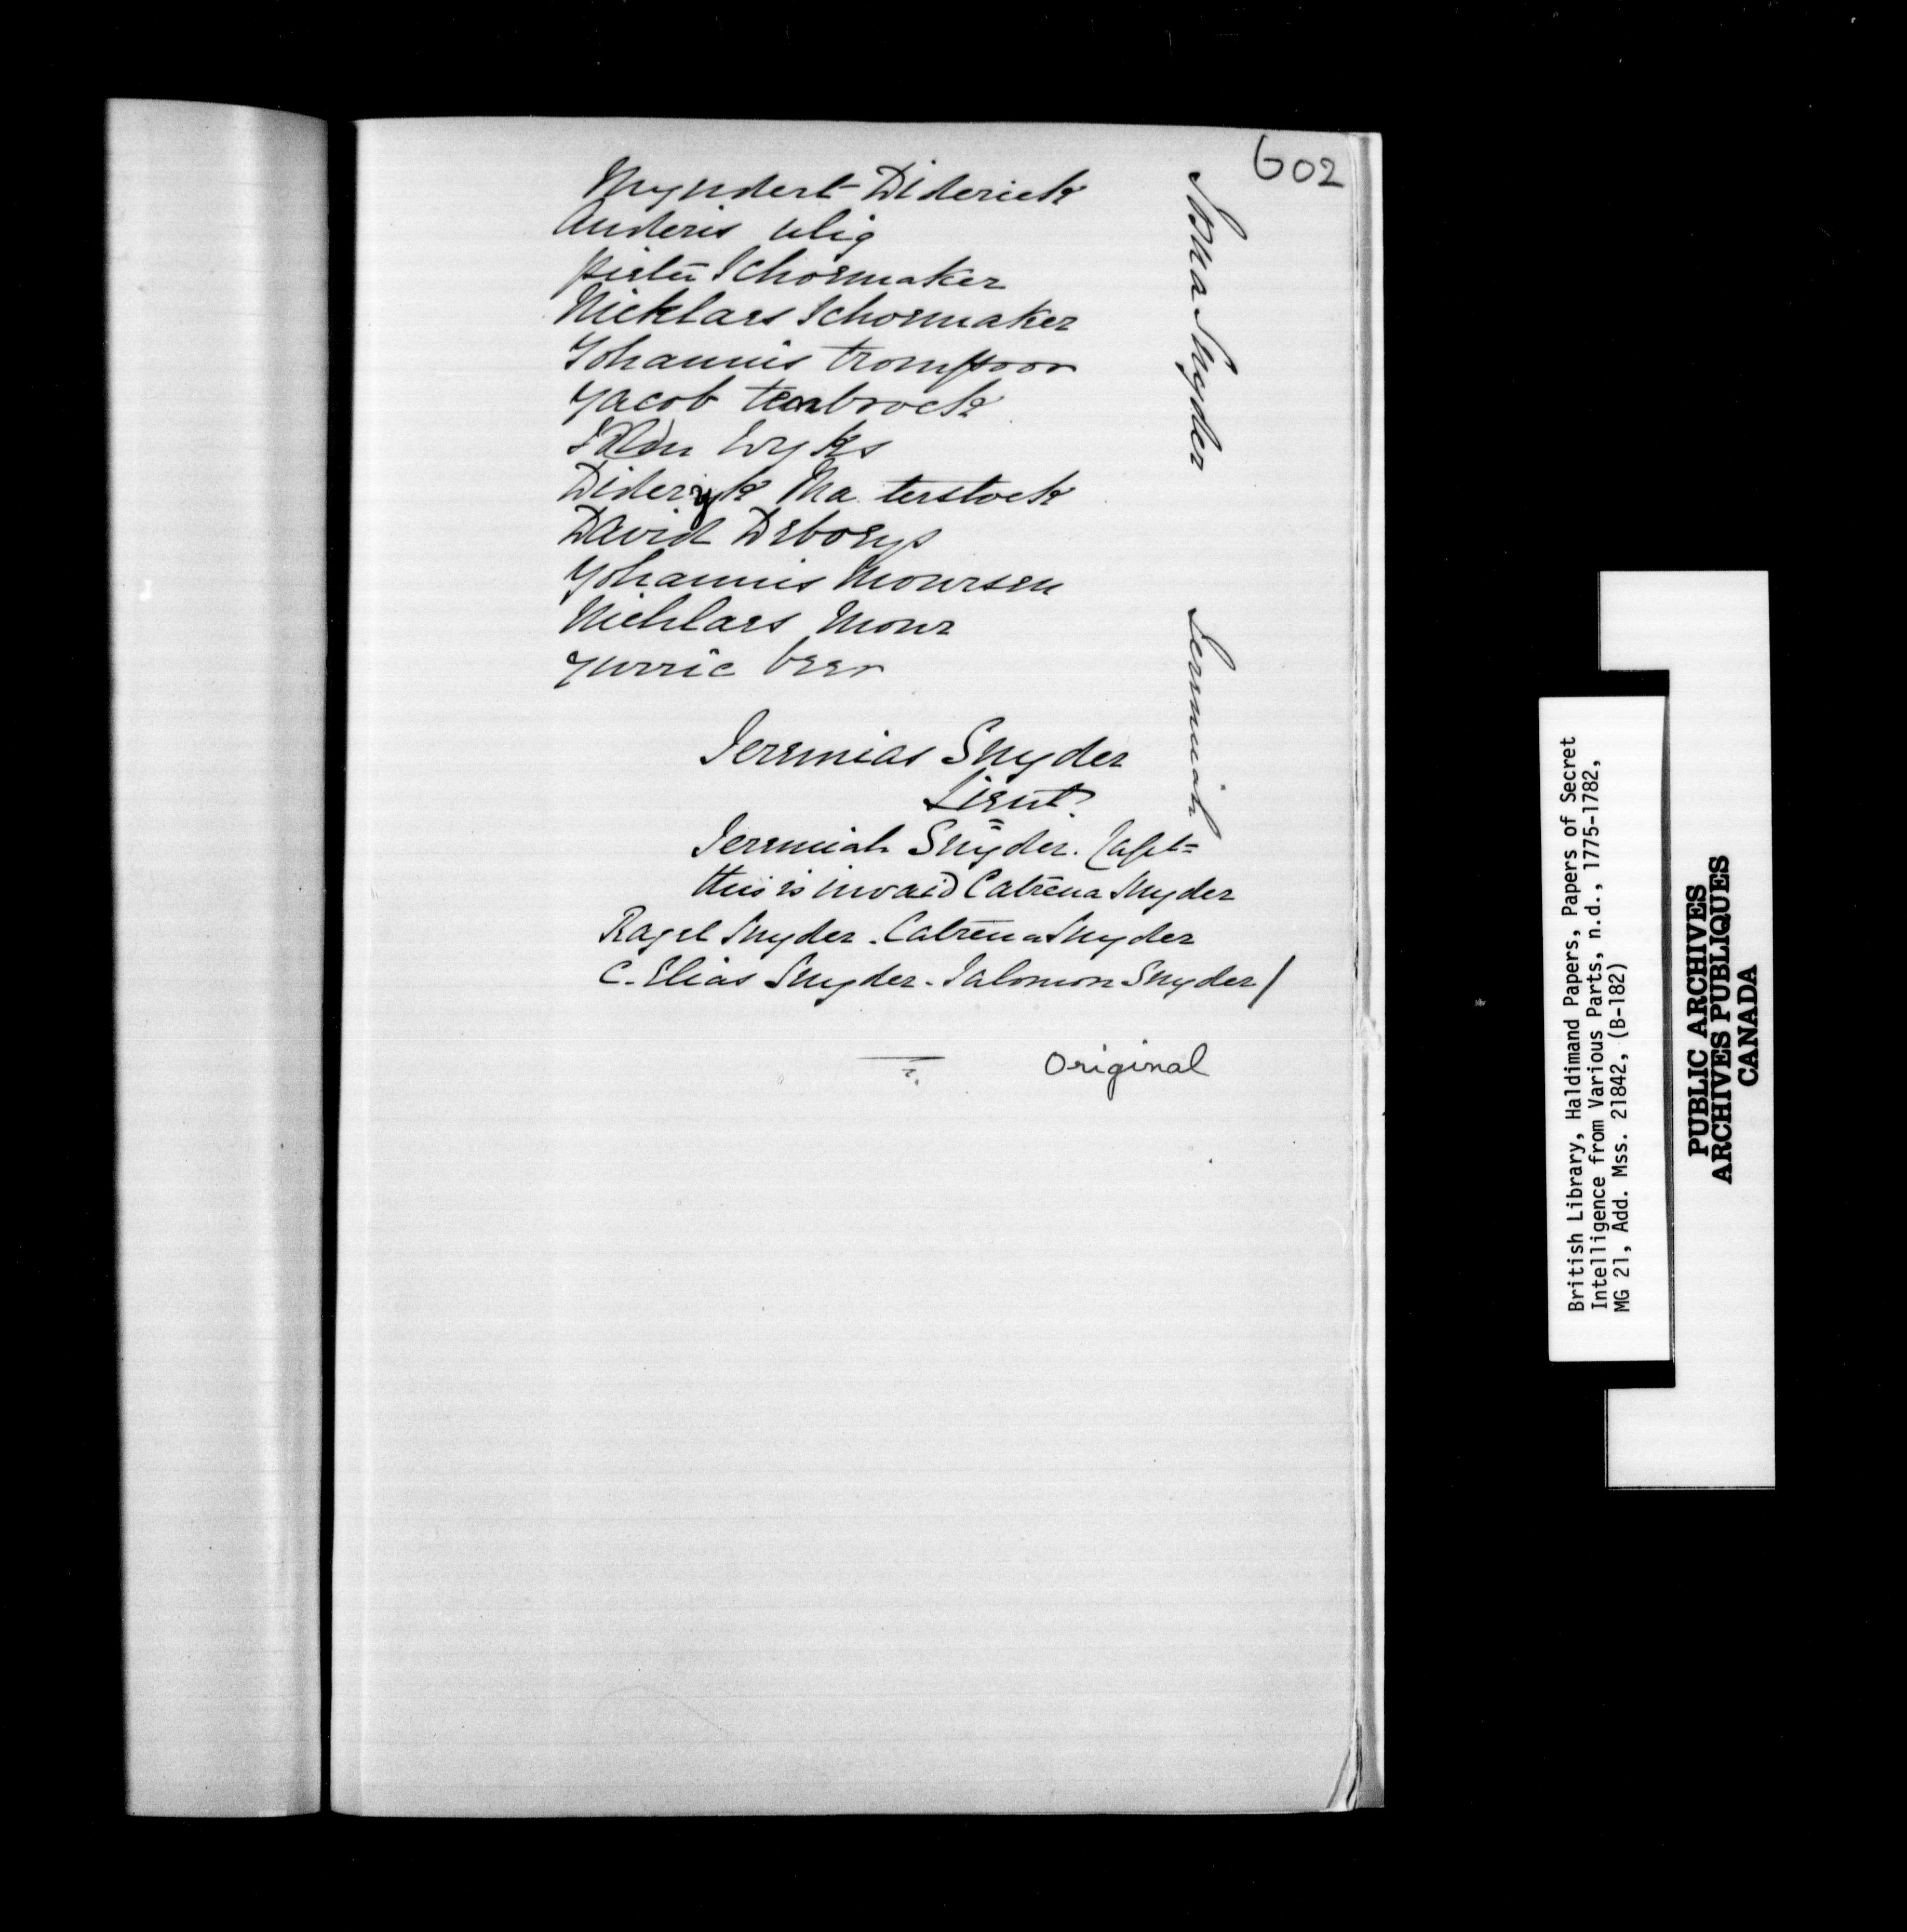 602
Myndert Diderick
Anderis ulig
pieter Schoemaker
Nicklaes Schoemaker
Yohannis trompoor
Yacob tenbrock
Wyks
Dideryk Ma terstock
David Deboys
Yohannis Moursen
Nichlaes Mour
Yurric beer
Snyder
Jeremiah
Jeremias Snyder
Lieut.
Jeremiah Snyder. Capt=
this is invaid Catrena Snyder
Ragel Snyder. Catrena Snyder
C. Elias Snyder. Salomon Snyder/
Original
British Library, Haldimand Papers, Papers of Secret
Intelligence from Various Parts, n.d., 1775-1782,
MG 21, Add. Mss. 21842, (B-182)
PUBLIC ARCHIVES
ARCHIVES PUBLIQUES
CANADA